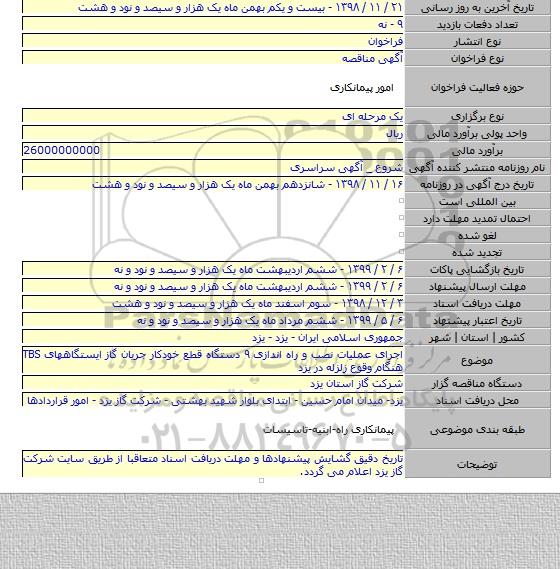 تاریخ آخرین به روز رسانی ۲۱ / ۱۱ / ۱۳۹۸ - بیست و یکم بهمن ماه یک هزار و سیصد و نود و هشت
تعداد دفعات بازدید ۹ - نه
نوع انتشار فراخوان
نوع فراخوان آگهی مناقصه
حوزه فعالیت فراخوان امور پیمانکاری
نوع برگزاری یک مرحله ای
واحد پولی برآورد مالی ریال
برآورد مالی 26000000000
نام روزنامه منتشر کننده آگهی شروع _ آگهی سراسری
تاریخ درج آگهی در روزنامه ۱۶ / ۱۱ / ۱۳۹۸ - شانزدهم بهمن ماه یک هزار و سیصد و نود و هشت
بین المللی است
احتمال تمدید مهلت دارد
لغو شده
تجدید شده
تاریخ بازگشایی پاکات ۶ / ۲ / ۱۳۹۹ - ششم اردیبهشت ماه یک هزار و سیصد و نود و نه
مهلت ارسال پیشنهاد ۶ / ۲ / ۱۳۹۹ - ششم اردیبهشت ماه یک هزار و سیصد و نود و نه
مهلت دریافت اسناد ۳ / ۱۲ / ۱۳۹۸ - سوم اسفند ماه یک هزار و سیصد و نود و هشت
تاریخ اعتبار پیشنهاد ۶ / ۵ / ۱۳۹۹ - ششم مرداد ماه یک هزار و سیصد و نود و نه
کشور | استان | شهر جمهوری اسلامی ایران - یزد - یزد
موضوع اجرای عملیات نصب و راه اندازی ۹ دستگاه قطع خودکار جریان گاز ایستگاههای TBS
هنگام وقوع زلزله در یزد
دستگاه مناقصه گزار شرکت گاز استان یزد
محل دریافت اسناد یزد- میدان امام حسین - ابتدای بلوار شهید بهشتی - شرکت گاز یزد - امور قراردادها
طبقه بندی موضوعی پیمانکاری راه-ابنیه-تاسیسات
۰۲۱-۸۸۳۴۹۶۷۰-۵
توضیحات تاریخ دقیق گشایش پیشنهادها و مهلت دریافت اسناد متعاقبا از طریق سایت شرکت
گاز یزد اعلام می گردد.